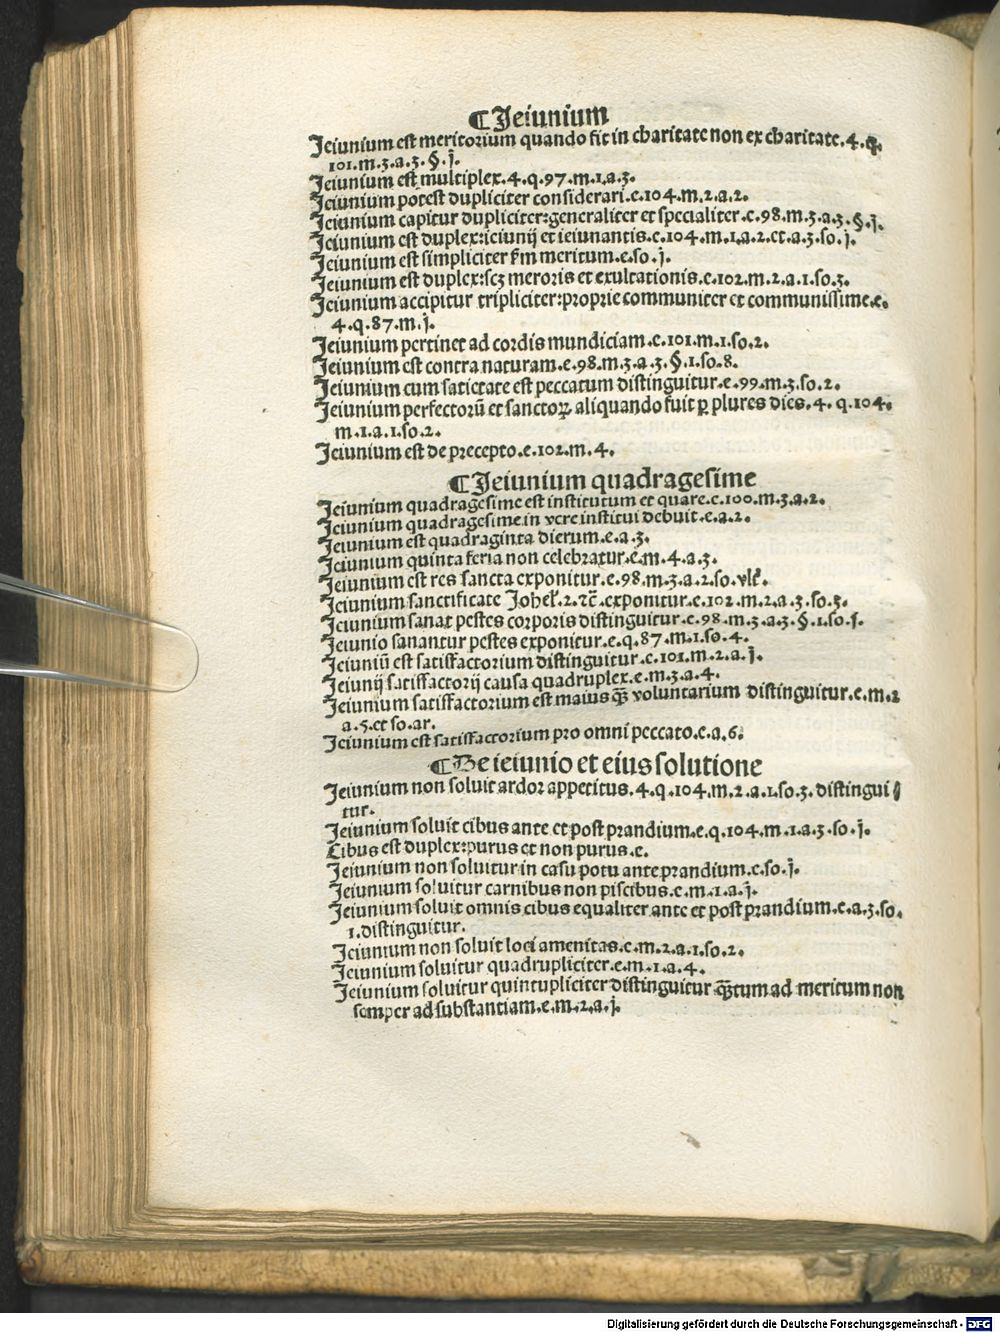 ¶ Jeiunium
Jeiunium est meritorium quando fit in charitate non ex charitate.4.q̄.
101.m.3.a.3.§.j̄.
Jeiunium est multiplex.4.q.97.m.1.a.3.
Jeiunium potest dupliciter considerari.e.104.m.2.a.2.
Jeiunium capitur dupliciter:generaliter et specialiter.e.98.m.3.a.3.§.j̄.
Jeiunium est duplex:ieiunij et ieiunantis.e.104.m.1.a.2.et.a.3.so.j̄.
Jeiunium est simpliciter ẜm meritum.e.so.j̄.
Jeiunium est duplex:scꝫ meroris et exultationis.e.102.m.2.a.1.so.3.
Jeiunium accipitur tripliciter:proprie communiter et communissime.e.
4.q.87.m.j̄.
Jeiunium pertinet ad cordis mundiciam.e.101.m.1.so.2.
Jeiunium est contra naturam.e.98.m.3.a.3.§.1.so.8.
Jeiunium cum satietate est peccatum distinguitur.e.99.m.3.so.2.
Jeiunium perfectorū et sanctoꝝ aliquando fuit ꝑ plures dies.4.q.104.
m.1.a.1.so.2.
Jeiunium est de precepto.e.102.m.4.
¶ Jeiunium quadragesime
Jeiunium quadragesime est institutum et quare.e.100.m.3.a.2.
Jeiunium quadragesime in vere institui debuit.e.a.2.
Jeiunium est quadraginta dierum.e.a.3.
Jeiunium quinta feria non celebratur.e.m.4.a.3.
Jeiunium est res sancta exponitur.e.98.m.3.a.2.so.vlt̄.
Jeiunium sanctificate Johel̄.2.⁊c̄.exponitur.e.102.m.2.a.3.so.5.
Jeiunium sanat pestes corporis distinguitur.e.98.m.3.a.3.§.1.so.j.
Jeiunio sanantur pestes exponitur.e.q.87.m.1.so.4.
Jeiuniū est satisfactorium distinguitur.e.101.m.2.a.j̄.
Jeiunij satisfactorij causa quadruplex.e.m.3.a.4.
Jeiunium satisfactorium est maius qȝ̄ voluntarium distinguitur.e.m.2
a.5.et so.ar.
Jeiunium est satisfactorium pro omni peccato.e.a.6.
¶ De ieiunio et eius solutione
Jeiunium non soluit ardor appetitus.4.q.104.m.2.a.1.so.3.distingui
tur.
Jeiunium soluit cibus ante et post prandium.e.q.104.m.1.a.3.so.j̄.
Cibus est duplex:purus et non purus.e.
Jeiunium non soluitur in casu potu ante prandium.e.so.j̄.
Jeiunium soluitur carnibus non piscibus.e.m.1.a.j̄.
Jeiunium soluit omnis cibus equaliter ante et post prandium.e.a.3.so.
1.distinguitur.
Jeiunium non soluit loci amenitas.e.m.2.a.1.so.2.
Jeiunium soluitur quadrupliciter.e.m.1.a.4.
Jeiunium soluitur quintupliciter distinguitur qȝ̄tum ad meritum non
semper ad substantiam.e.m.2.a.j̄.
Digitalisierung gefördert durch die Deutsche Forschungsgemeinschaft - DFG